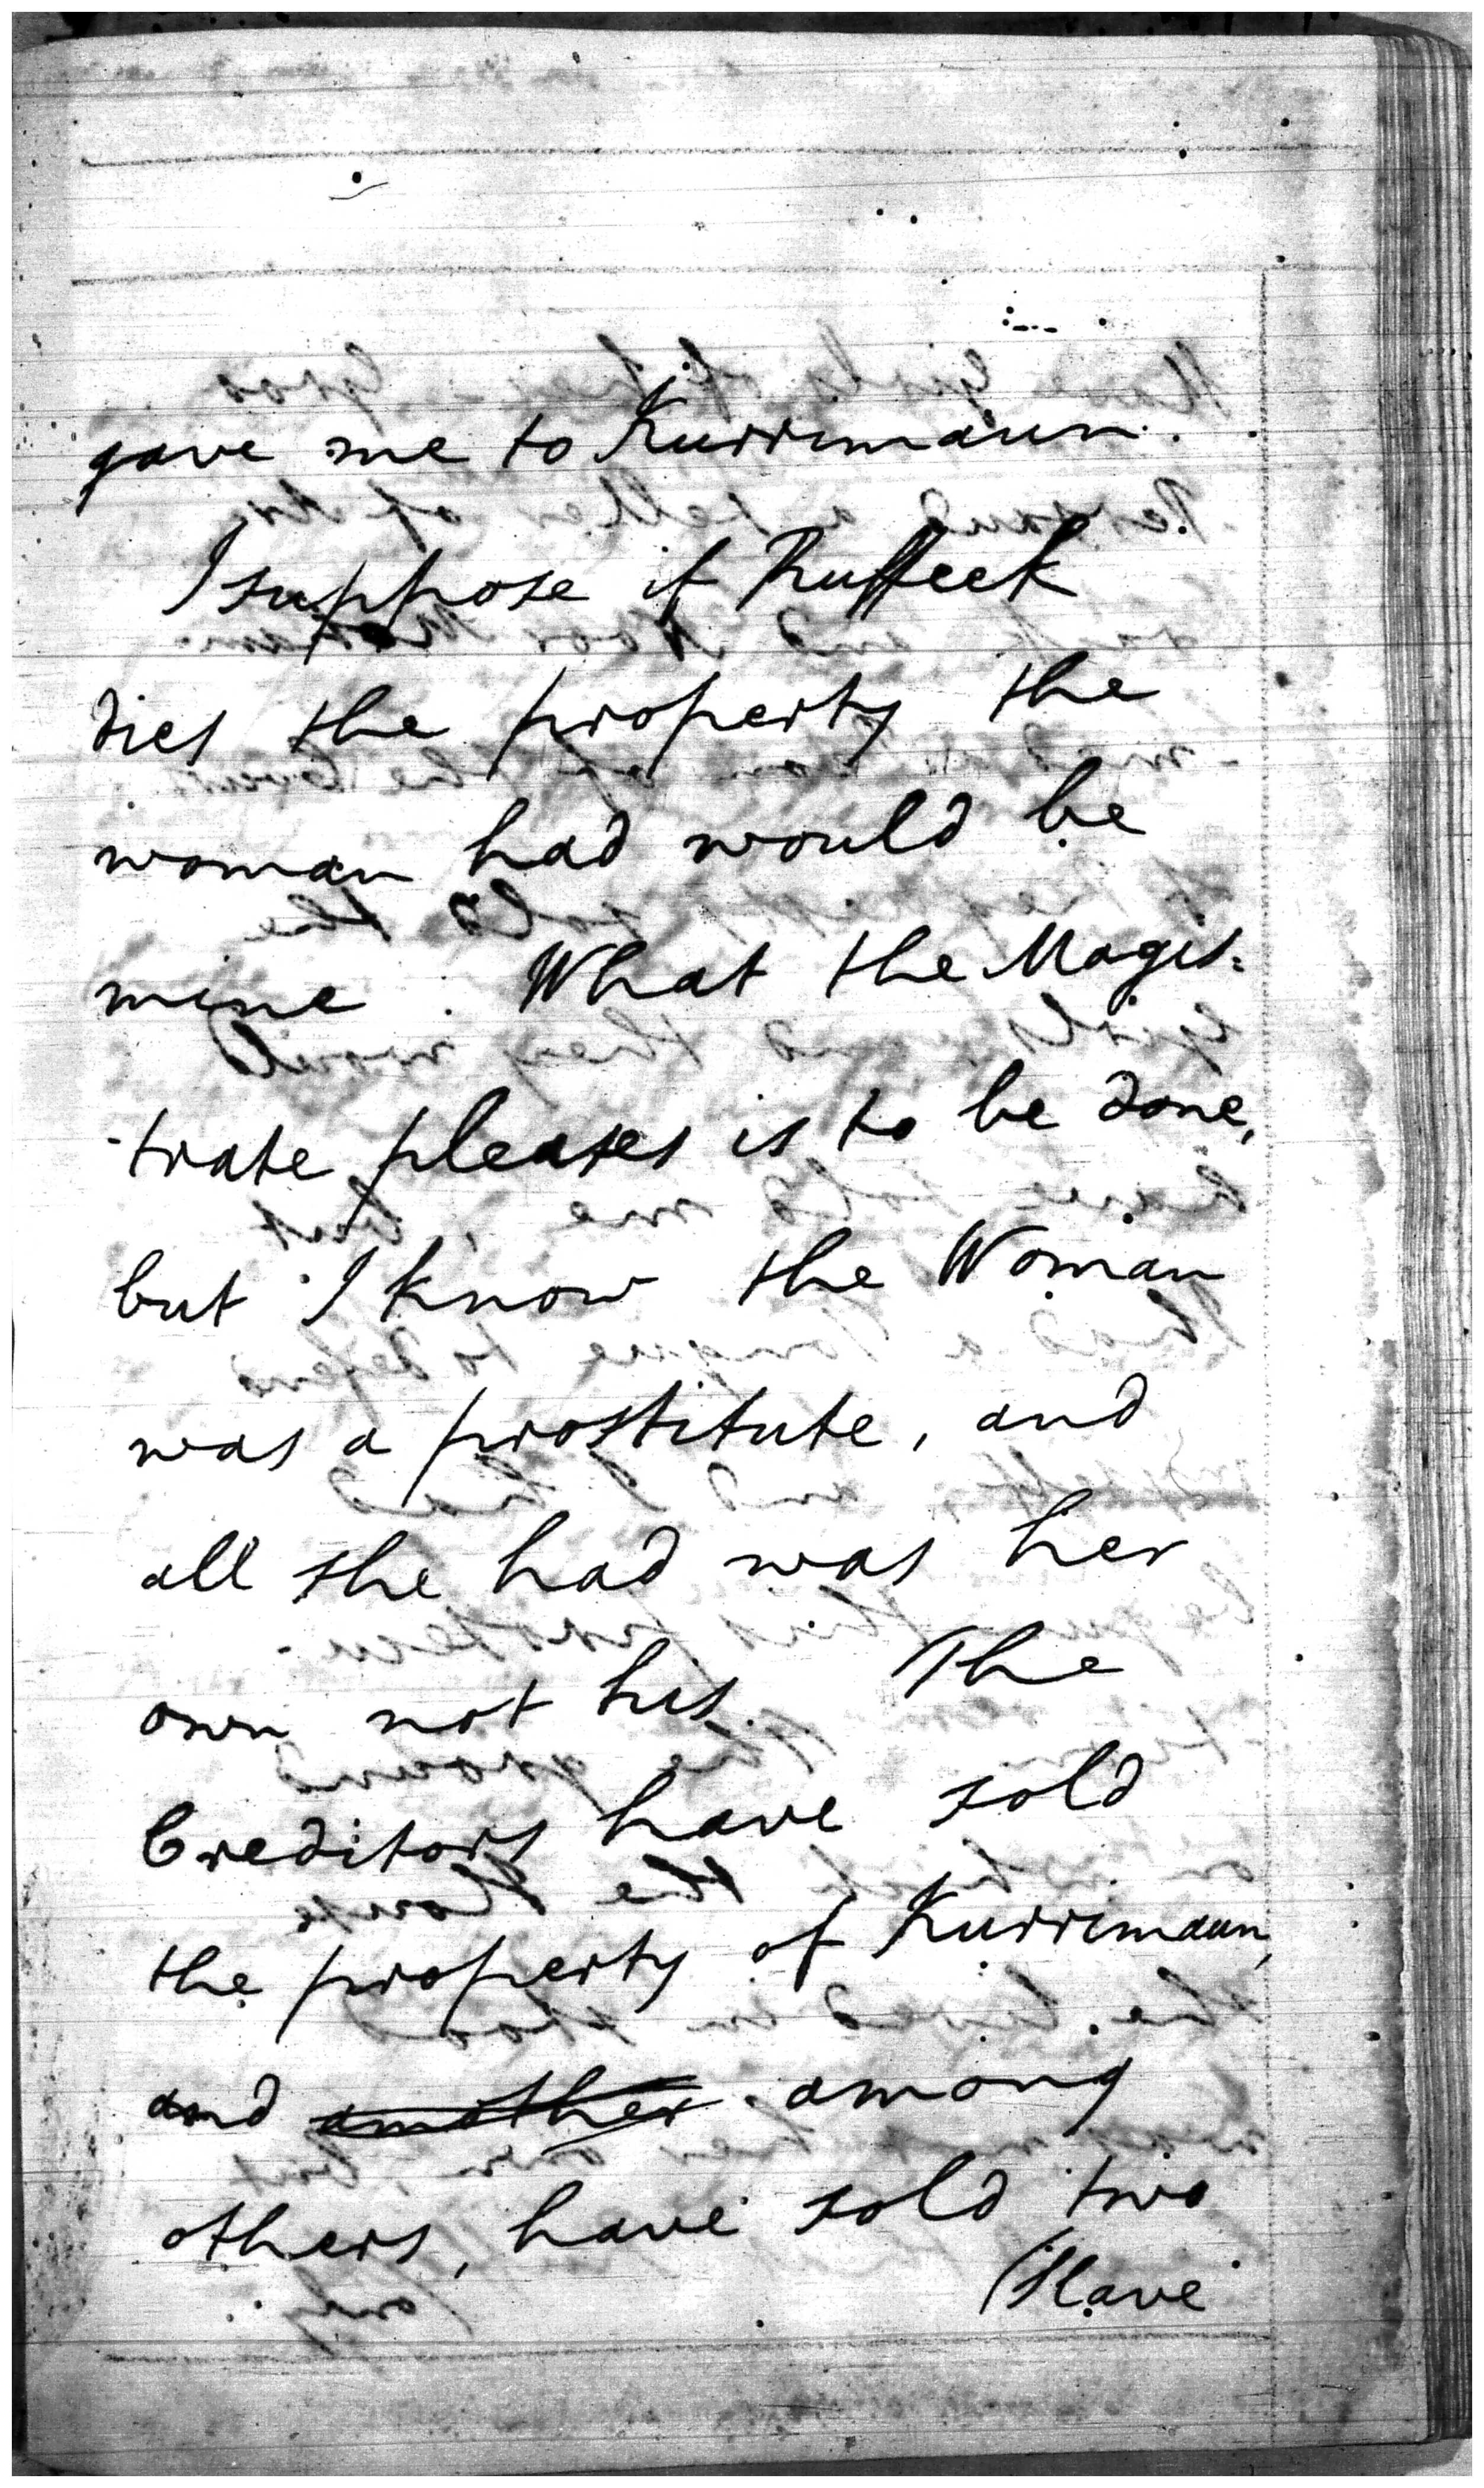 gave me to Kurrimaun.
I suppose if Ruffeek
dies the property the
woman had would be
mine. What the Magis=
-trate pleases is to be done,
but I know the Woman
was a prostitute, and
all she had was her
own not his. The
Creditors have sold
the property of Kurrimaun,
and another among
others, have sold two
Slave